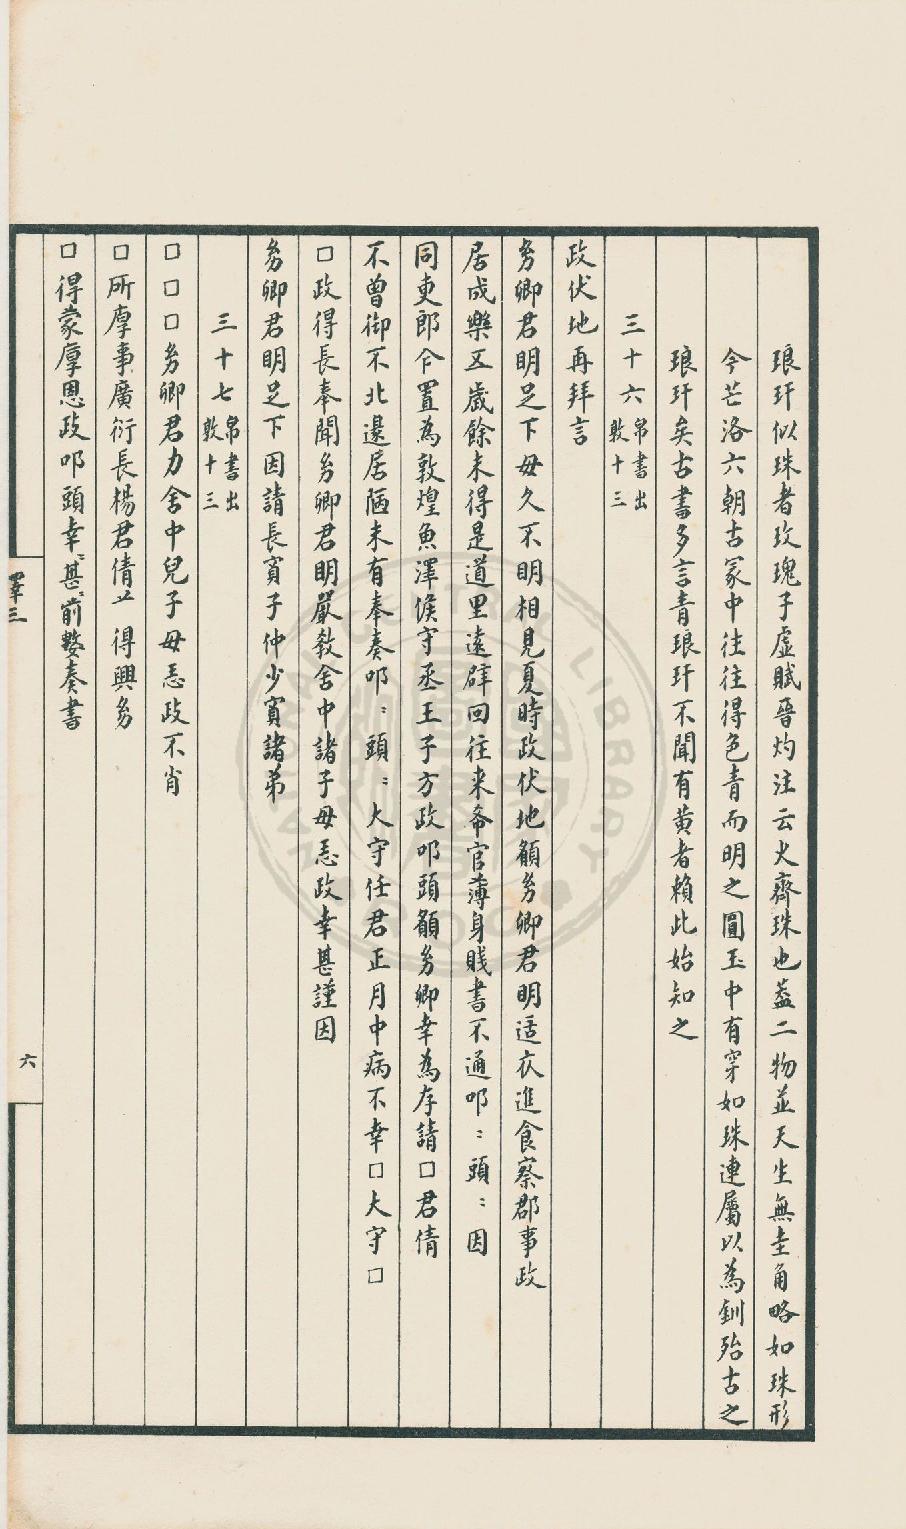 琅玕似珠者玫瑰子虛賦晉灼注云火齊珠也蓋二物並天生無圭角略如珠形
今芒洛六朝古冢中往往得色青而明之圓玉中有穿如珠連屬以為釧殆古之
琅玕矣古書多言青琅玕不聞有黄者賴此始知之
三十六 帛書出敦十三
政伏地再拜言
㓜卿君明足下毋久不明相見夏時政伏地願㓜卿君明適衣進食察郡事政
居成樂五歲餘未得是道里遠辟回往来希官薄身賤書不通叩〻頭〻因
同吏郎今置為敦煌魚澤候守丞王子方政叩頭願㓜卿幸為存請□君倩
不曾御不北邊居陋未有奉奏叩〻頭〻大守任君正月中病不幸□大守□
□政得長奉聞㓜卿君明嚴教舍中諸子毋恙政幸甚謹因
㓜卿君明足下因請長賓子仲少賓諸弟
三十七 帛書出敦十三
□□□㓜卿君力舍中兒子毋恙政不肖
□所厚事廣衍長楊君倩 得興㓜
□得蒙厚恩政叩頭幸〻甚〻前數奏書
釋三
六
NATIONAL CENTRAL LIBRARY R.O.C.